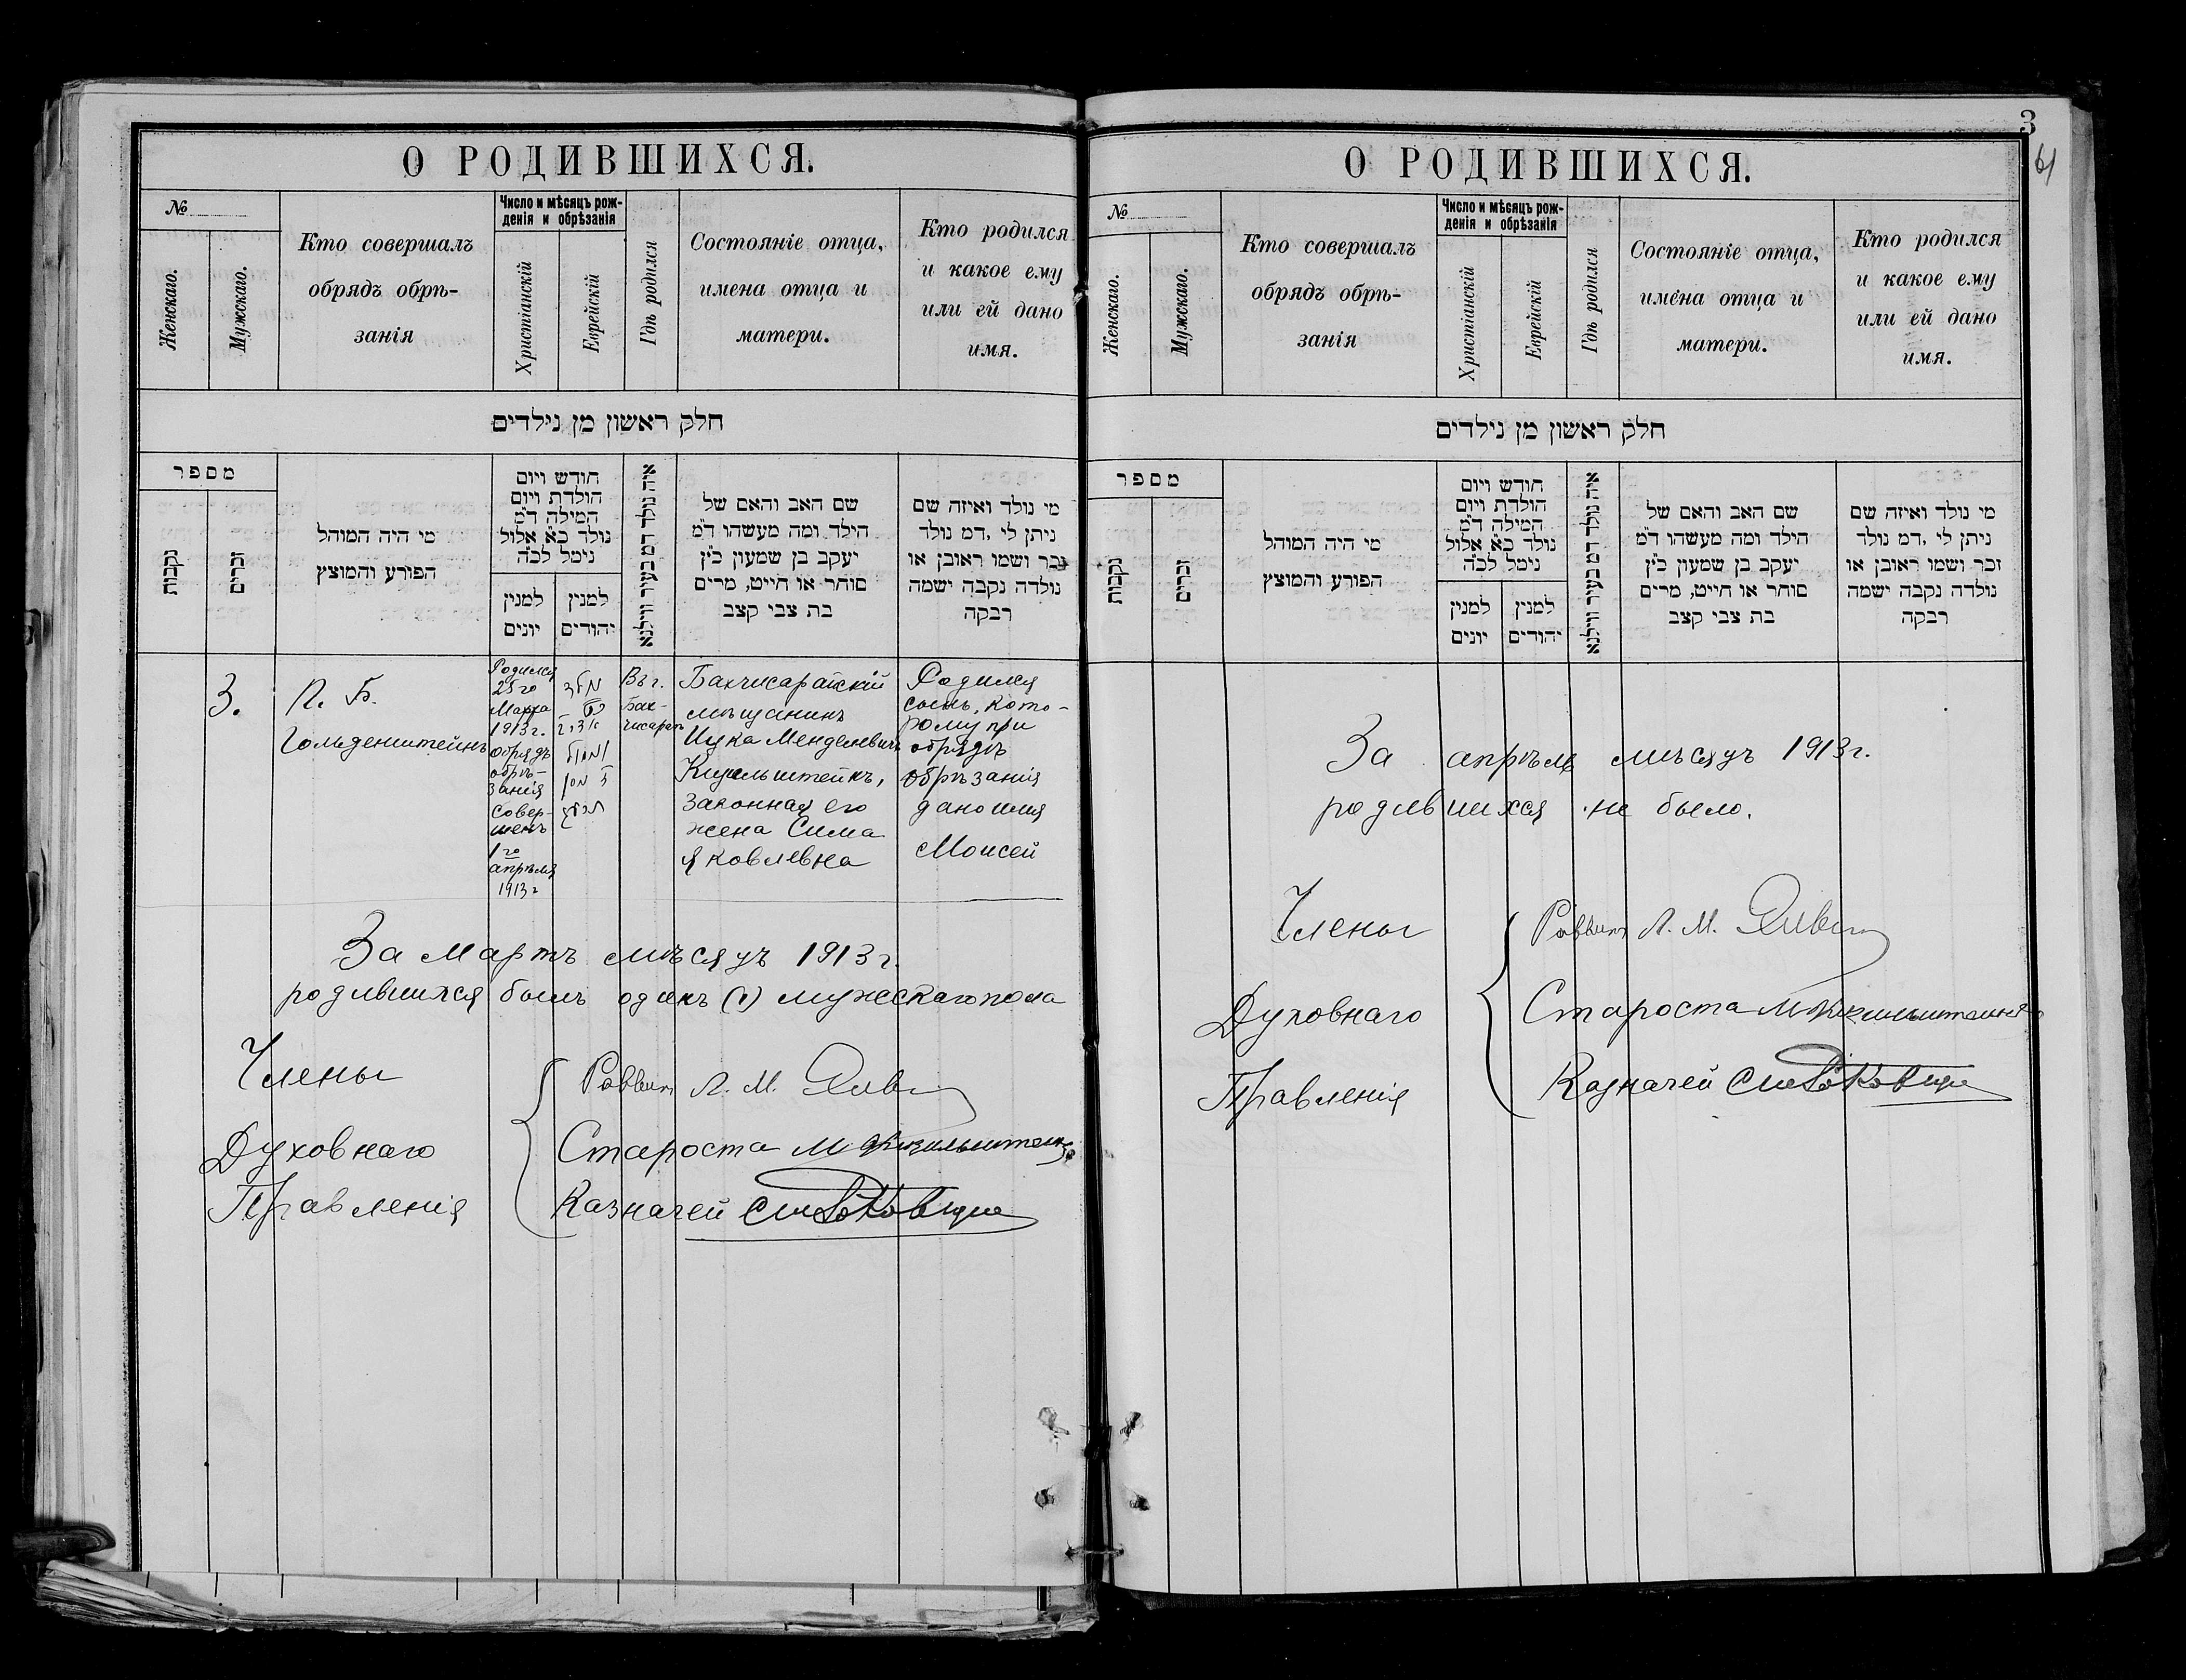 О РОДИВШИХСЯ.
№
Женскаго.
Мужскаго.
Кто совершалъ
обрядъ обрѣ-
занія
Число и мѣсяцъ рож-
денія и обрѣзанія
Христіанскій
Еврейскій
Гдѣ родился
Состояніе отца,
имена отца и
матери.
Кто родился
и какое ему
или ей дано
имя.
חלק ראשון מן נילדים
מספר
נקבות
זכרים
מי היה המוהל
הפורע והמוצץ
חודש ויום
הולדת ויום
המילה ד״מ
נולד כ״א אלול
נימל לכ״ה
למנין
יונים
למנין
יהודים
איה נולד דמ בעיר ווילנא
שם האב והאם של
הילד ומה מעשהו ד״מ
יעקב בן שמעון כ״ץ
סוחר או חייט, מרים
בת צבי קצב
מי נולד ואיזה שם
ניתן לי ,דמ נולד
זכר ושמו ראובן או
נולדה נקבה ישמה
רבקה
3.
П. Б.
Гольденштейнъ
Родился
25го
Марта
1913г.
обрядъ
обрѣ-
занія
совер-
шенъ
1го
апрѣля
1913г
Въ г.
Бах-
чисараѣ
Бахчисарайскій
мѣщанинъ
Ицка Менделевичъ
Кизильштейнъ,
законная его
жена Сима
Яковлевна
Родился
сынъ, кото-
рому при
обрядѣ
обрѣзанія
дано имя
Моисей
За Мартъ мѣсяцъ 1913г.
родившихся былъ одинъ (1) мужескаго пола
Члены
Духовнаго
Правленія
Раввинъ Л. М.
Староста М. Кизильштейнъ
Казначей
3
61
О РОДИВШИХСЯ.
№
Женскаго.
Мужскаго.
Кто совершалъ
обрядъ обрѣ-
занія
Число и мѣсяцъ рож-
денія и обрѣзанія
Христіанскій
Еврейскій
Гдѣ родился
Состояніе отца,
имена отца и
матери.
Кто родился
и какое ему
или ей дано
имя.
חלק ראשון מן נילדים
מספר
נקבות
זכרים
מי היה המוהל
הפורע והמוצץ
חודש ויום
הולדת ויום
המילה ד״מ
נולד כ״א אלול
נימל לכ״ה
למנין
יונים
למנין
יהודים
איה נולד דמ בעיר ווילנא
שם האב והאם של
הילד ומה מעשהו ד״מ
יעקב בן שמעון כ״ץ
סוחר או חייט, מרים
בת צבי קצב
מי נולד ואיזה שם
ניתן לי ,דמ נולד
זכר ושמו ראובן או
נולדה נקבה ישמה
רבקה
За апрѣль мѣсяцъ 1913г.
родившихся не было.
Члены
Духовнаго
Правленія
Раввинъ Л. М.
Староста М. Кизильштейнъ
Казначей